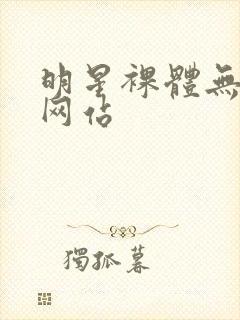 明星裸體無
网站
獨孤暮